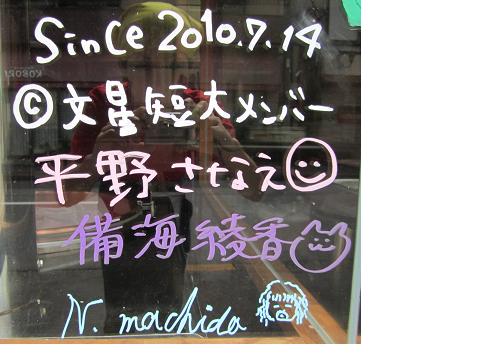 Since 2010.7.14
©文星短大メンバー
平野さなえ
備海綾香
N. machida